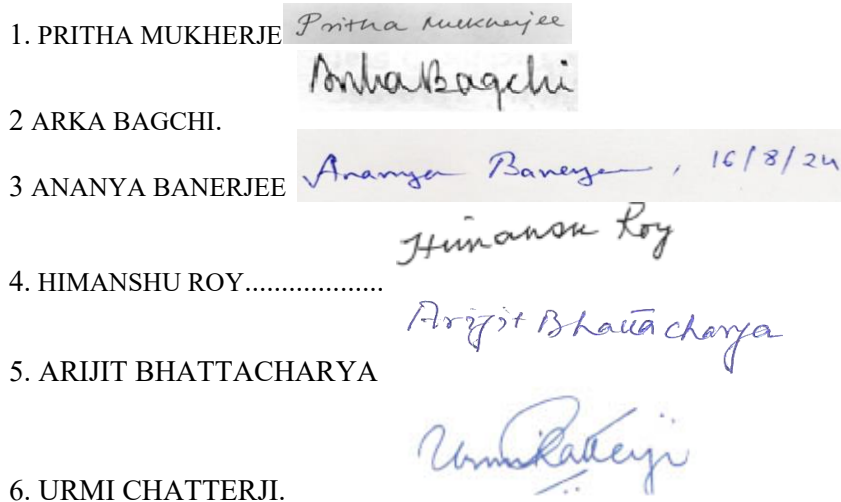 1. PRITHA MUKHERJE Pritha Mukherjee
Arka Bagchi
2 ARKA BAGCHI.
3 ANANYA BANERJEE Ananya Banerjee, 16/8/24
Himansu Roy
4. HIMANSHU ROY...................
Arijit Bhattacharya
5. ARIJIT BHATTACHARYA
Urmi Chatterji
6. URMI CHATTERJI.